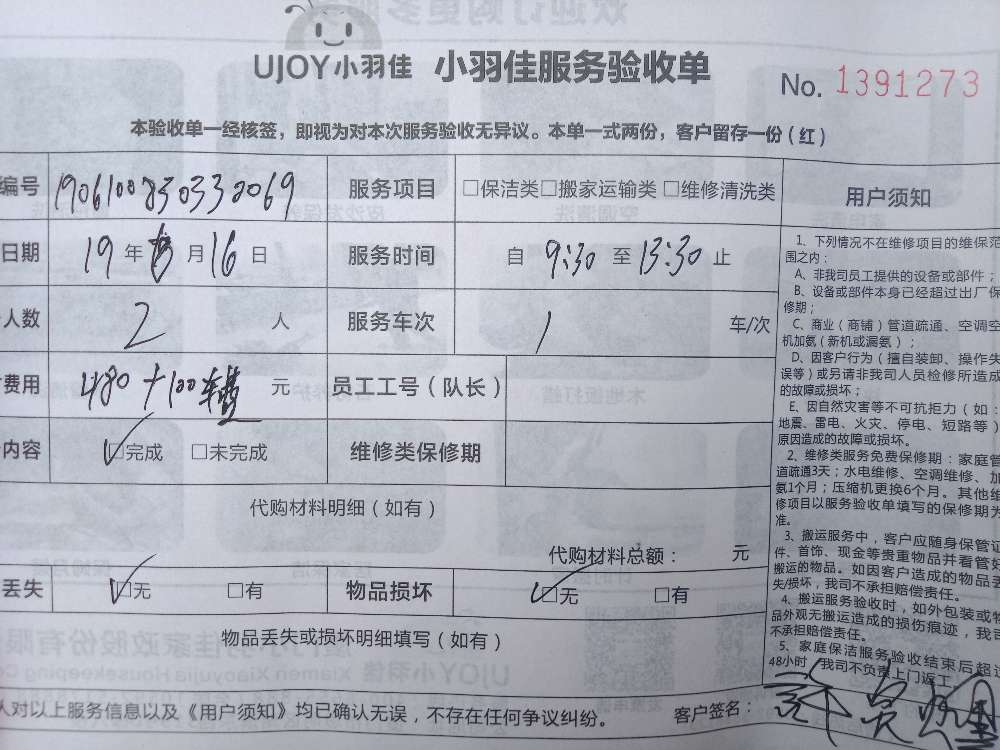 UJOY小羽佳 小羽佳服务验收单 No. 1391273
本验收单一经核签，即视为对本次服务验收无异议。本单一式两份，客户留存一份（红）
编号 190610085033 2069 服务项目 □保洁类□搬家运输类 □维修清洗类
日期 19 年 月 16 日 服务时间 自 9:30 至 13:30 止
人数 2 人 服务车次 1 车/次
费用 480 + 100车费 元 员工工号（队长）
内容 ☑完成 □未完成 维修类保修期
代购材料明细（如有）
代购材料总额： 元
丢失 ☑无 □有 物品损坏 ☑无 □有
物品丢失或损坏明细填写（如有）
人对以上服务信息以及《用户须知》均已确认无误，不存在任何争议纠纷。 客户签名：
用户须知
1、下列情况不在维修项目的维保范
围之内：
A、非我司员工提供的设备或部件；
B、设备或部件本身已经超过出厂保
修期；
C、商业（商铺）管道疏通、空调空
机加氨（新机或漏氨）；
D、因客户行为（擅自装卸、操作失
误等）或另请非我司人员检修所造成
的故障或损坏；
E、因自然灾害等不可抗拒力（如：
地震、雷电、火灾、停电、短路等）
原因造成的故障或损坏。
2、维修类服务免费保修期：家庭管
道疏通3天；水电维修、空调维修、加
氨1个月；压缩机更换6个月。其他维
修项目以服务验收单填写的保修期为
准。
3、搬运服务中，客户应随身保管证
件、首饰、现金等贵重物品并看管好
搬运的物品。如因客户造成的物品丢
失/损坏，我司不承担赔偿责任。
4、搬运服务验收时，如外包装或物
品外观无搬运造成的损伤痕迹，我司
不承担赔偿责任。
5、家庭保洁服务验收结束后超过
48小时，我司不负责上门返工